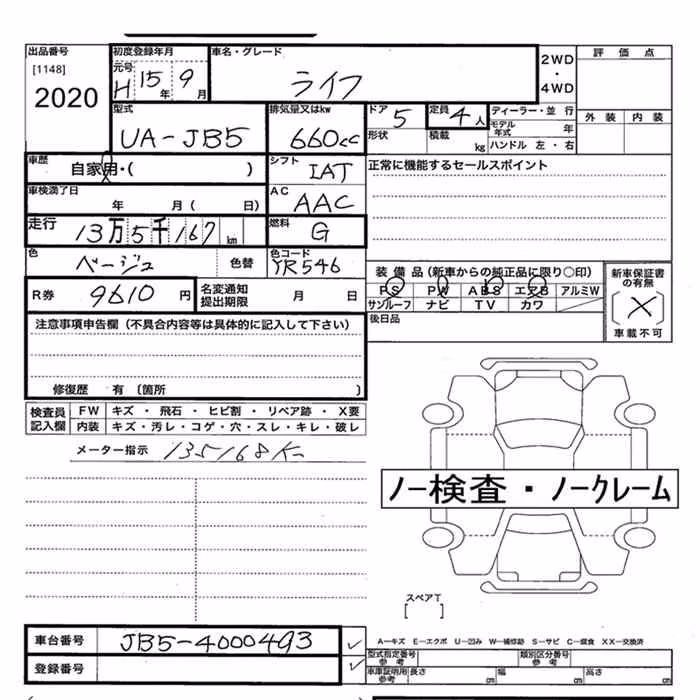 出品番号 初度登録年月 車名・グレード 2WD・4WD 評価点
[1148] 元号 H 15年 9月 ライフ
2020
型式 排気量又はkw ドア 5 定員 4人 ディーラー・並行 外装 内装
UA-JB5 660cc 形状 積載 kg モデル年式 年
ハンドル 左・右
車歴 自家用・( ) シフト IAT 正常に機能するセールスポイント
車検満了日 年 月( 日) AC AAC
走行 13万5千167km 燃料 G
色 ベージュ 色替 色コード YR546 装備品(新車からの純正品に限り○印) 新車保証書の有無
R券 9610円 名変通知提出期限 月 日 PS PW ABS エアB アルミW
サンルーフ ナビ TV カワ 車載不可
注意事項申告欄(不具合内容等は具体的に記入して下さい) 後日品
修復歴 有〔箇所 〕
検査員記入欄 FW キズ・飛石・ヒビ割・リペア跡・X要
内装 キズ・汚レ・コゲ・穴・スレ・キレ・破レ
メーター指示 135168K
ノー検査・ノークレーム
スペアT
[ ]
車台番号 JB5-4000493
A―キズ E―エクボ U―凹み W―補修跡 S―サビ C―腐食 XX―交換済
登録番号 型式指定番号 参考 類別区分番号 参考
車庫証明用 参考 長さ cm 幅 cm 高さ cm